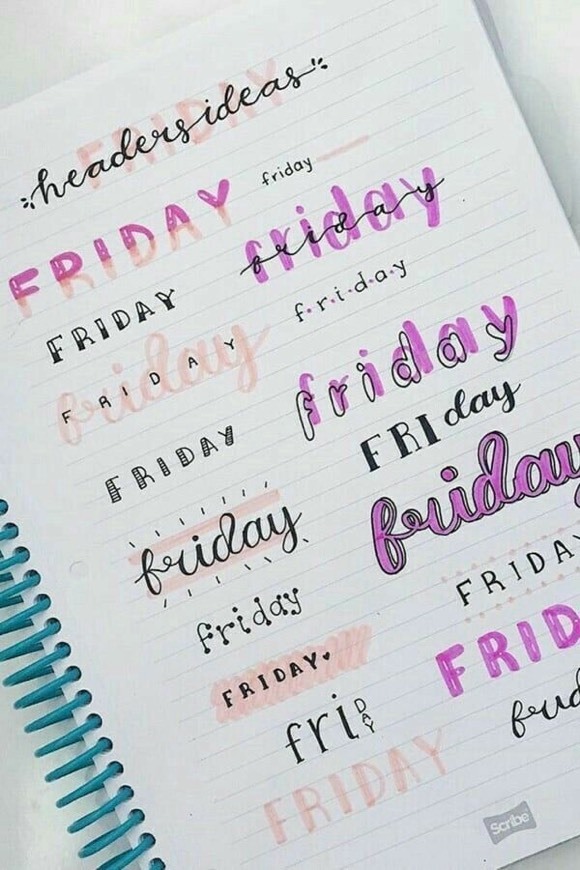 FRIDAY
headers ideas
FRIDAY
friday
friday
friday
FRIDAY
f·r·i·d·a·y
friday
FRIDAY
friday
friday
FRIDAY
FRIday
friday
friday
FRIDAY
friday
FRIDAY♥
FRID
friDAY
FRIDAY
Scribe